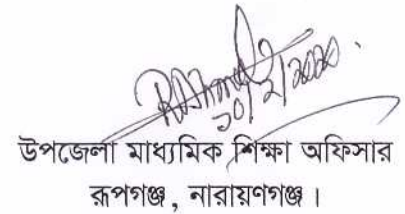 ১০/২/২০২০
উপজেলা মাধ্যমিক শিক্ষা অফিসার
রূপগঞ্জ, নারায়ণগঞ্জ।